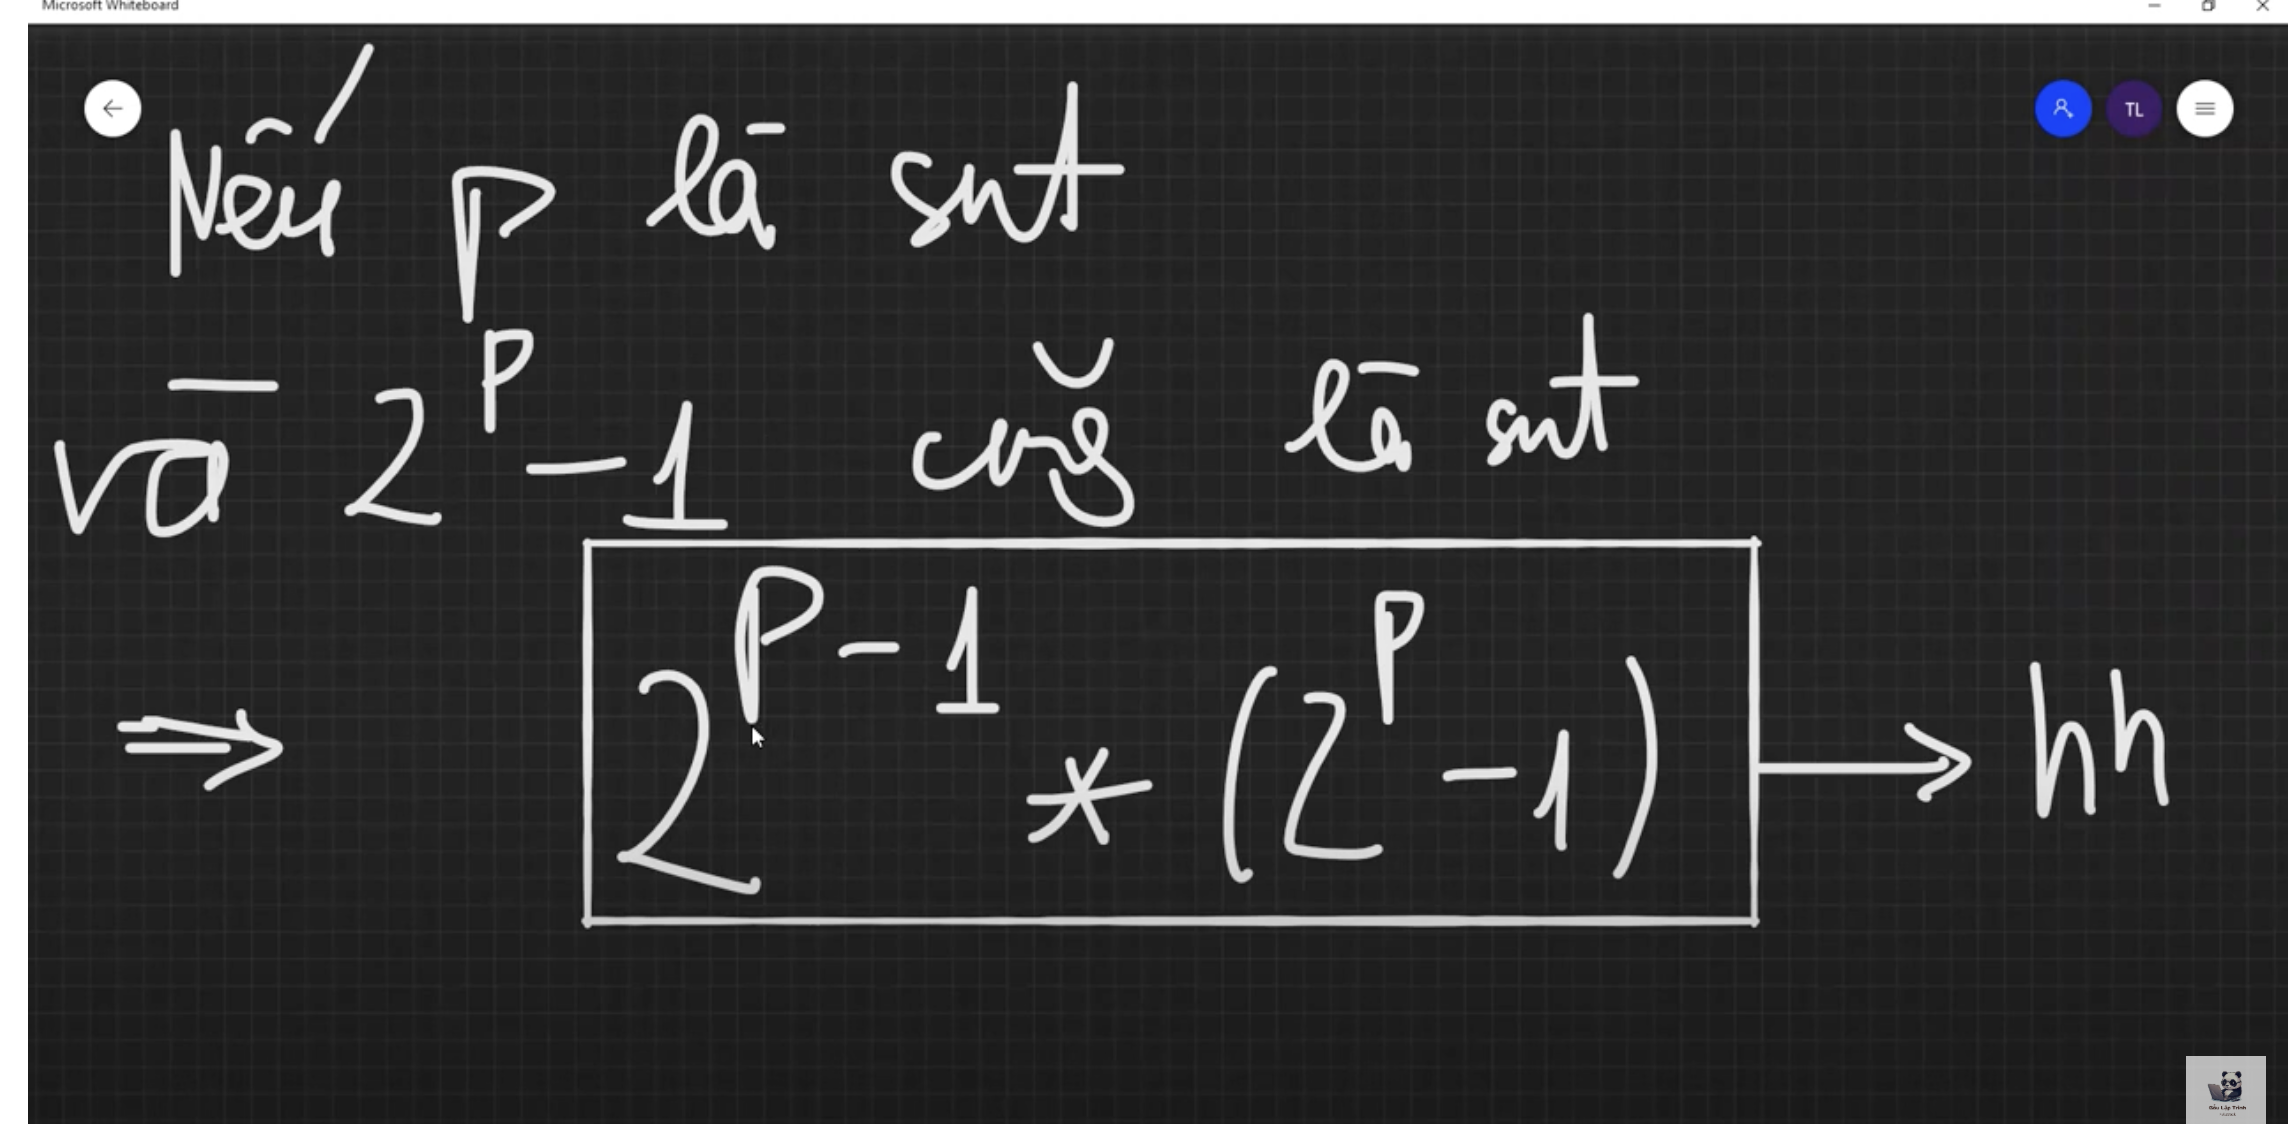 Microsoft Whiteboard
TL
Nếu p là snt
và 2^p - 1 cũg là snt
⇒ 2^{p-1} * (2^p - 1) → hh
Gấu Lập Trình